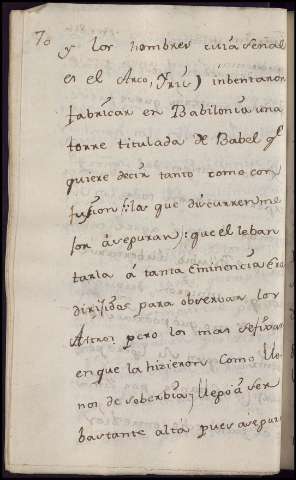 70
y los hombres cuia señal
es el Arco, Yris) inbentaron
fabricar en Babilonia una
torre titulada de Babel ql
quiere decir tanto como con
fusion: la que discurren me
jor aseguran: que el leban
tarla á tanta eminencia era
dirijidas para observar los
Astros pero los mas se fixan
en que la hizieron como lle
nos de soberbia; llegó á ser
bastante alta pues asegur